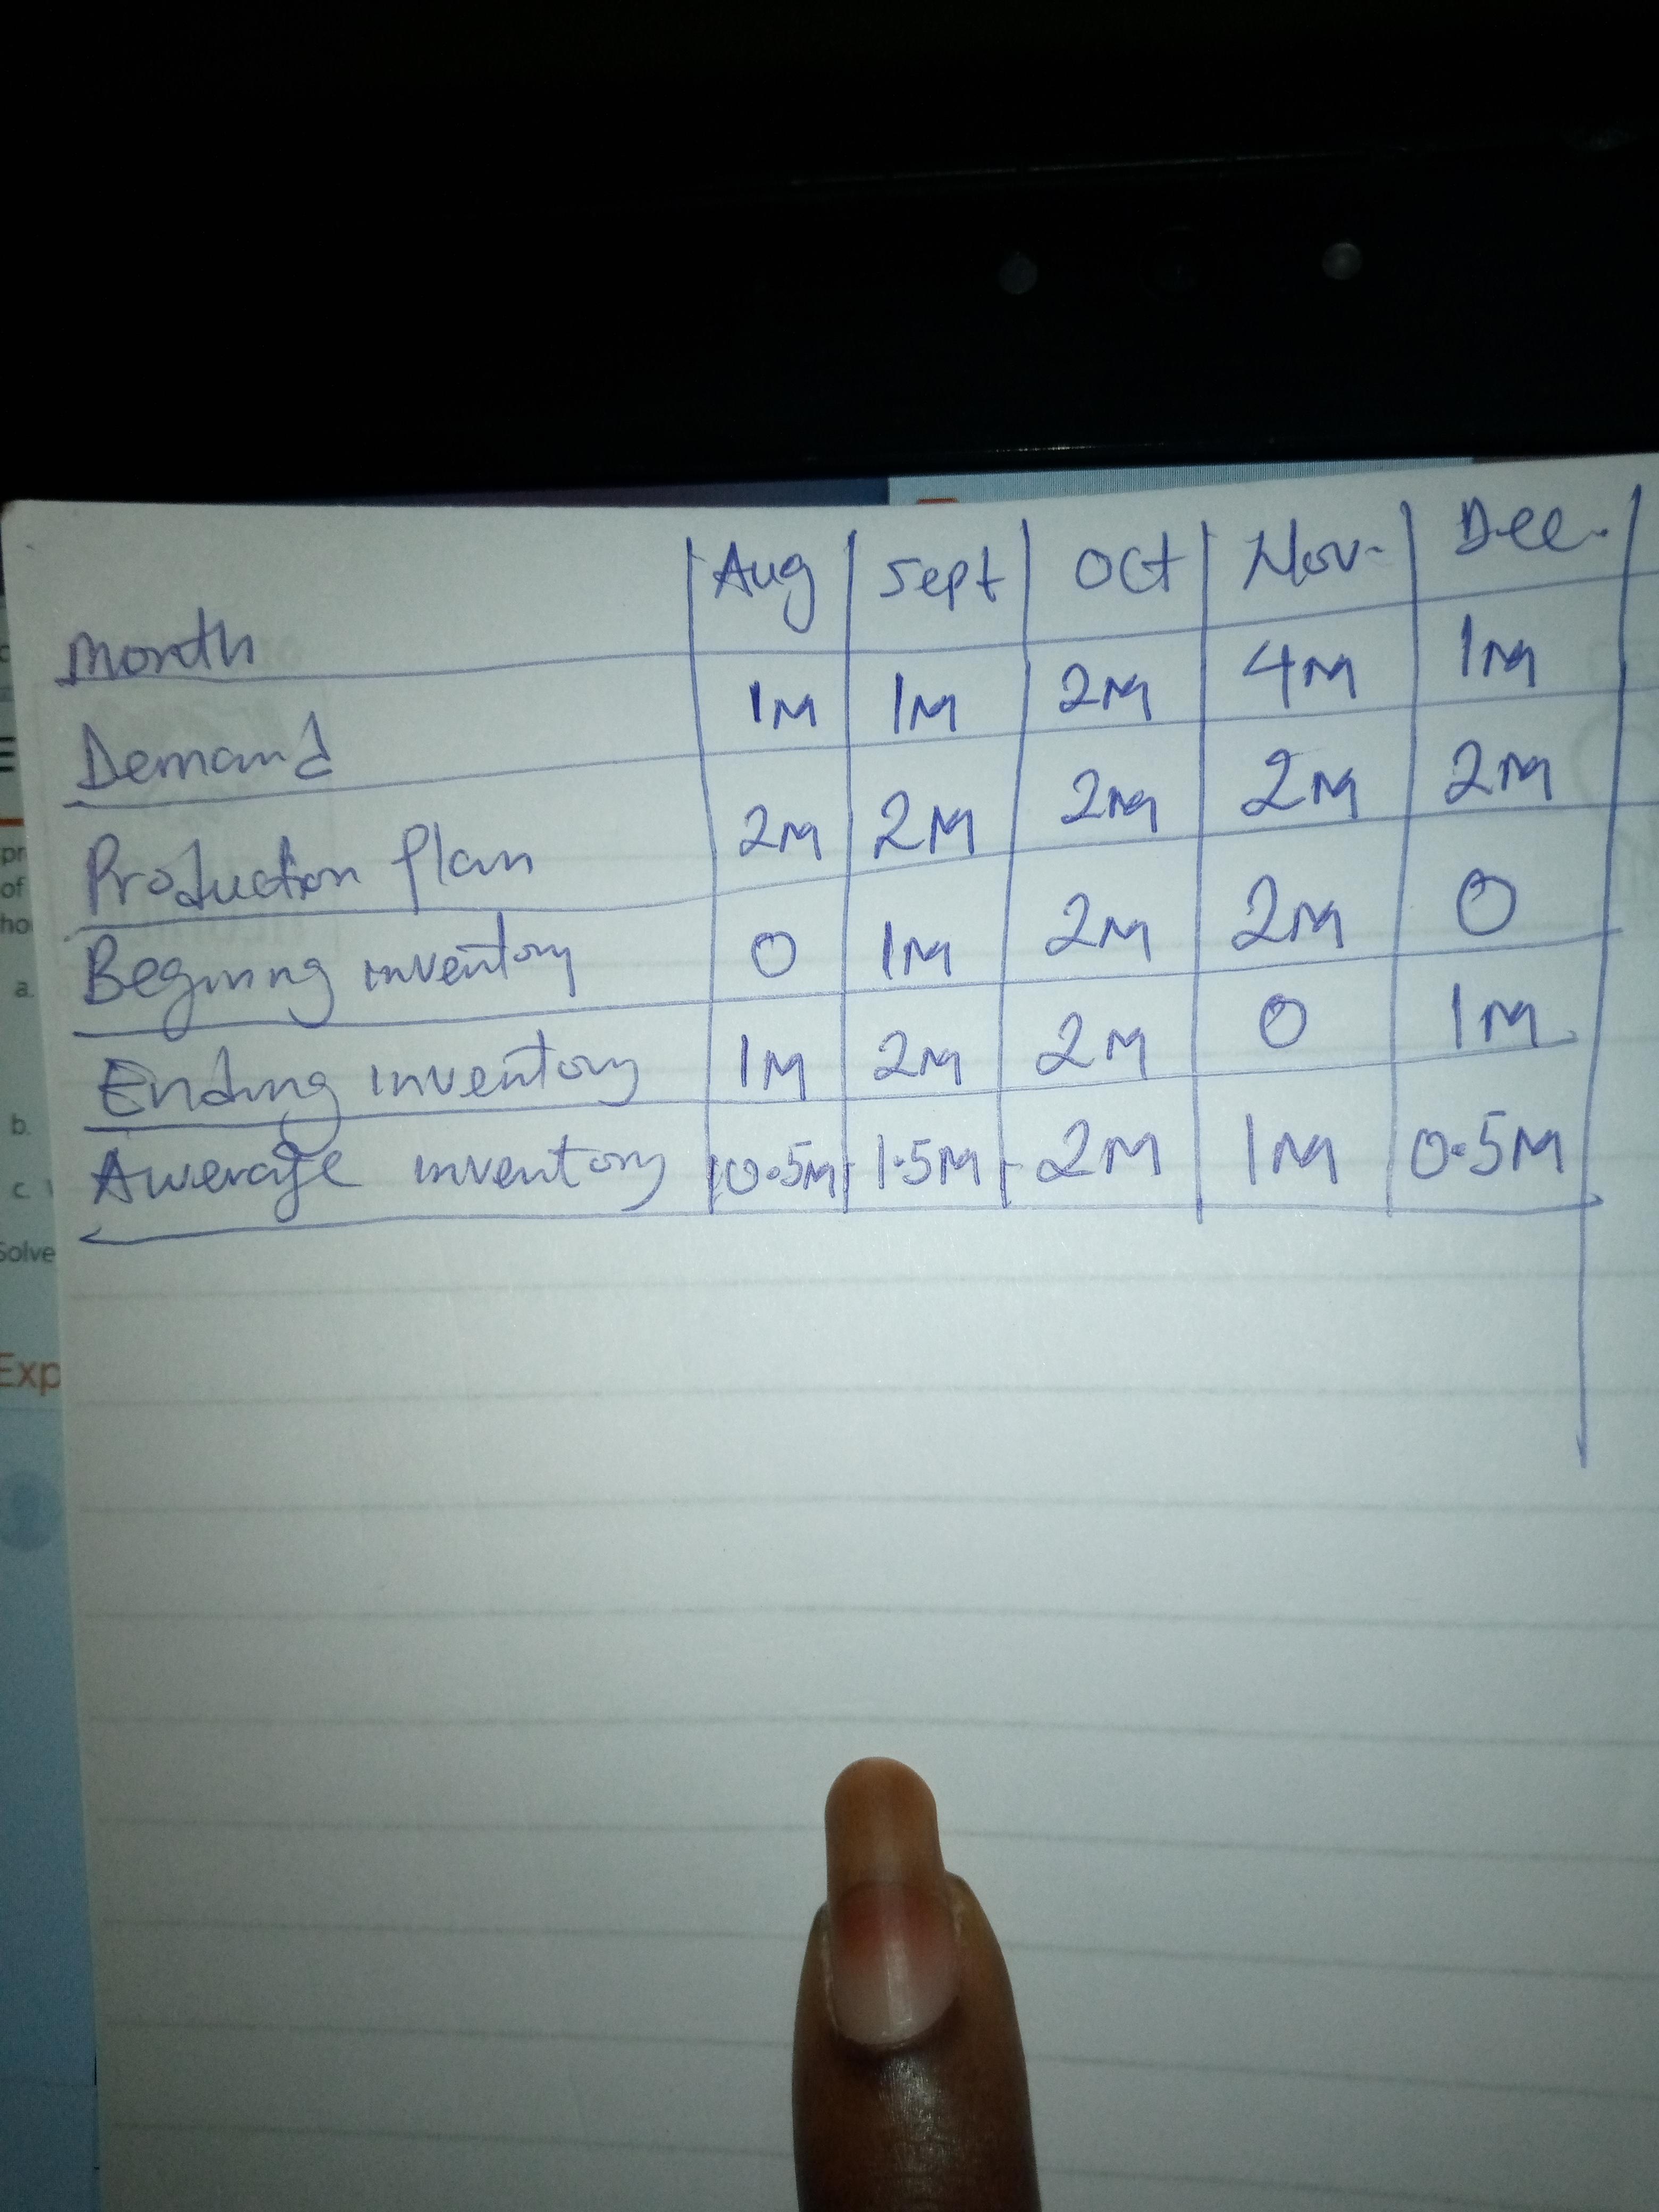 Month Aug Sept Oct Nov. Dec.
Demand 1M 1M 2M 4M 1M
Production plan 2M 2M 2M 2M 2M
Begining inventory 0 1M 2M 2M 0
Ending inventory 1M 2M 2M 0 1M
Average inventory 0.5M 1.5M 2M 1M 0.5M
pr
of
ho
a.
b.
c.
Solve
Exp